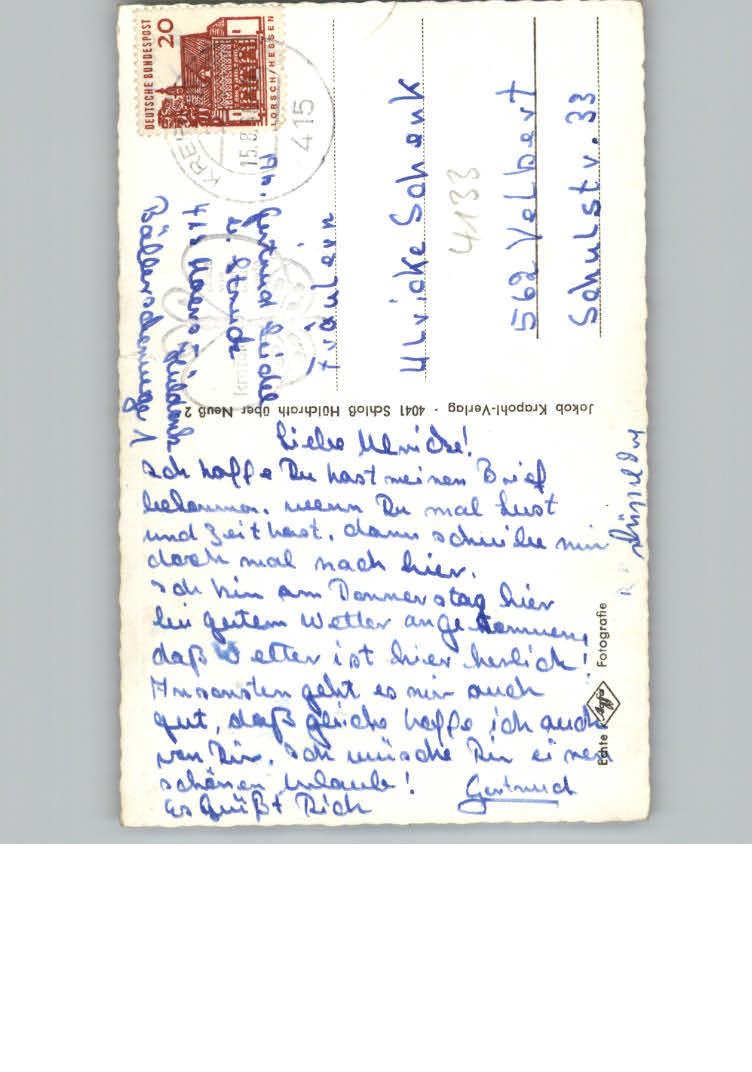 DEUTSCHE BUNDESPOST
20
LORSCH/HESSEN
KREF
15.8.
415
Gertrud
Fräulein
Ulricke Schenk
4133
562 Velbert
Schulstr. 33
Jakob Krapohl-Verlag · 4041 Schloß Hülchrath über Neuß 2
Liebe Ulricke!
Ich hoffe Du hast meinen Brief
bekommen. wenn Du mal Lust
und Zeit hast. dann schreibe mir
doch mal nach hier.
Ich bin am Donnerstag hier
bei gutem Wetter angekommen,
daß Wetter ist hier herlich!
Ansonsten geht es mir auch
gut, daß gleiche hoffe ich auch
von Dir. Ich wüsche Dir einen
schönen Urlaub!
Es Grüßt Dich
Gertrud
Echte Agfa Fotografie
Düsseldorf